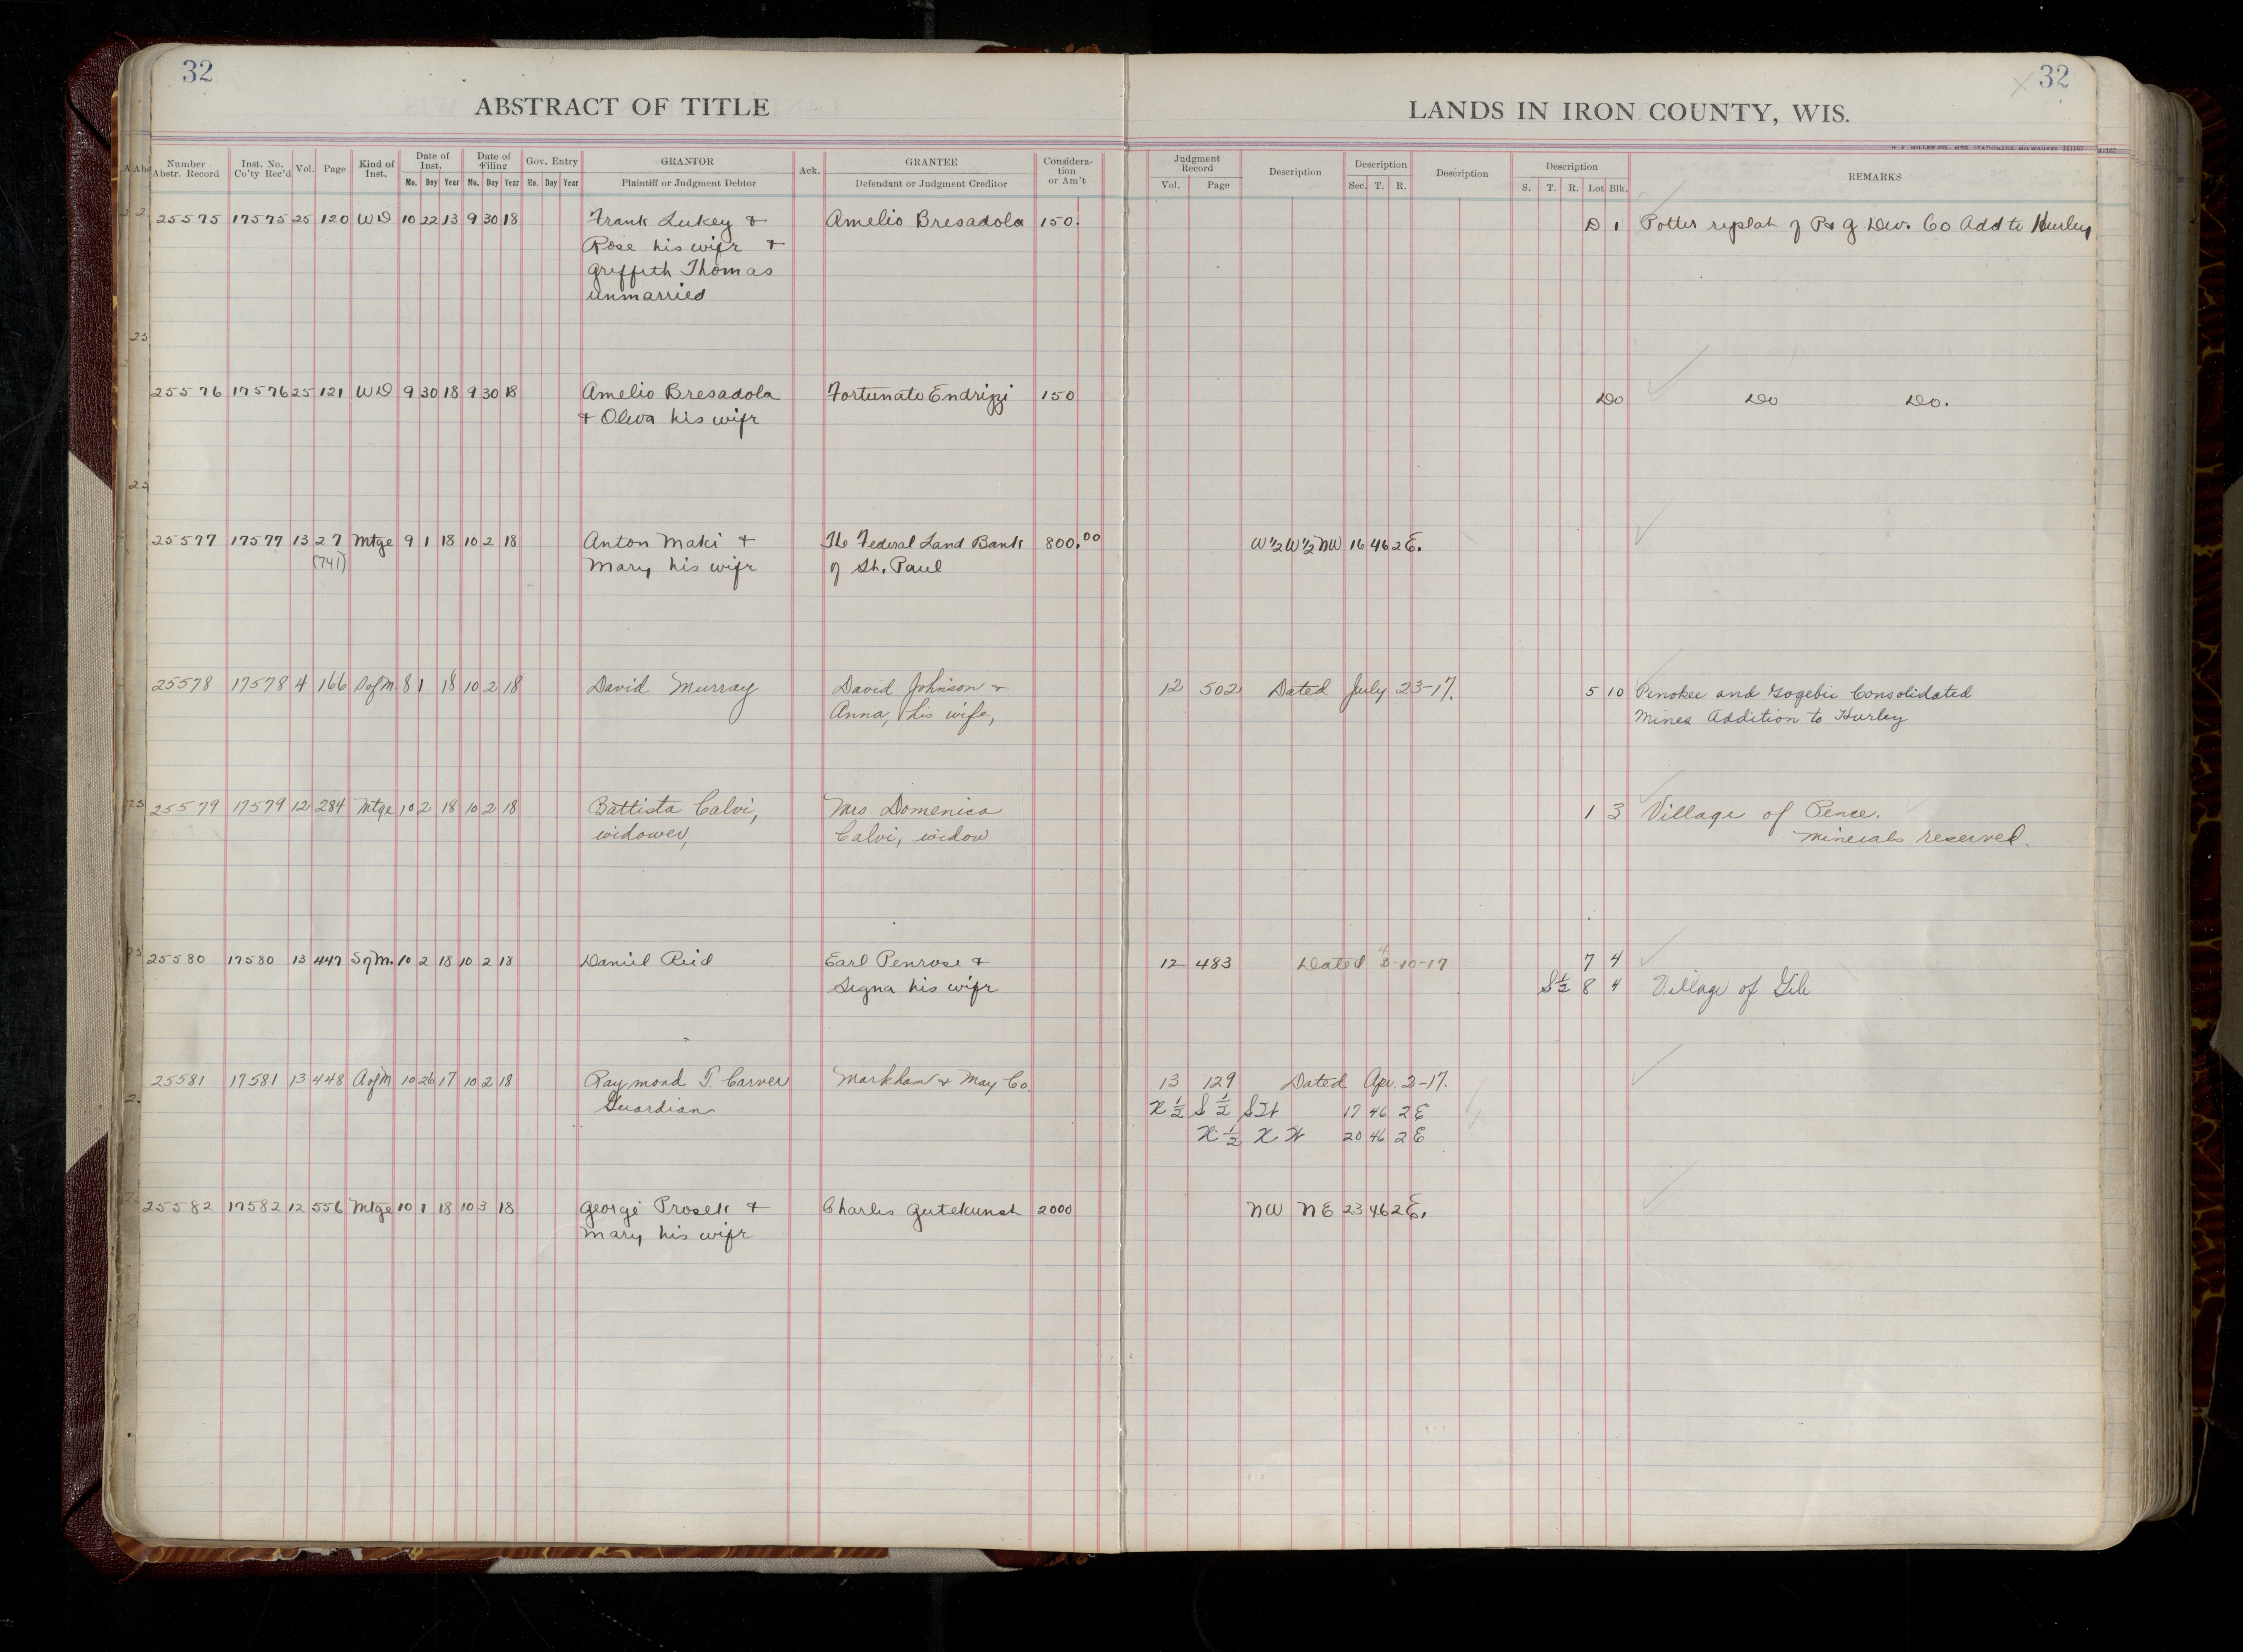 32
32
ABSTRACT OF TITLE
LANDS IN IRON COUNTY, WIS.
H. C. MILLER CO. MFG. STATIONERS, MILWAUKEE 141167
Number Abstr. Record | Inst. No. Co'ty Rec'd | Vol. | Page | Kind of Inst. | Date of Inst. Mo. Day Year | Date of Filing Mo. Day Year | Gov. Entry Mo. Day Year | GRANTOR Plaintiff or Judgment Debtor | Ack. | GRANTEE Defendant or Judgment Creditor | Considera- tion or Am't | Judgment Record Vol. Page | Description | Description Sec. T. R. | Description | Description S. T. R. Lot Blk. | REMARKS
25575 17575 25 120 WD 10 22 13 9 30 18 Frank Lukey & Amelio Bresadola 150. D 1 Potter replat of P & G Dev. Co Add to Hurley
Rose his wife &
Griffith Thomas
unmarried
25576 17576 25 121 WD 9 30 18 9 30 18 Amelio Bresadola Fortunato Endrizzi 150 Do Do Do.
& Oliva his wife
25577 17577 13 27 Mtge 9 1 18 10 2 18 Anton Maki & The Federal Land Bank 800.00 W 1/2 W 1/2 NW 16 46 2 E.
(741) Mary his wife of St. Paul
25578 17578 4 166 S of M. 8 1 18 10 2 18 David Murray David Johnson & 12 502 Dated July 23-17. 5 10 Penokee and Gogebic Consolidated
Anna, his wife, Mines Addition to Hurley
25579 17579 12 284 Mtge 10 2 18 10 2 18 Battista Calvi, Mrs. Domenica 1 3 Village of Pence.
widower, Calvi, widow Minerals reserved.
25580 17580 13 447 S of M. 10 2 18 10 2 18 Daniel Reid Earl Penrose & 12 483 Dated -10-17 7 4
Signa his wife S 1/2 8 4 Village of Gile
25581 17581 13 448 A of M 10 26 17 10 2 18 Raymond T. Carver Markham & May Co. 13 129 Dated Apr. 2-17.
Guardian N 1/2 S 1/2 SW 17 46 2 E
N 1/2 N W 20 46 2 E
25582 17582 12 556 Mtge 10 1 18 10 3 18 George Prosek & Charles Gutekunst 2000 NW NE 23 46 2 E.
Mary his wife